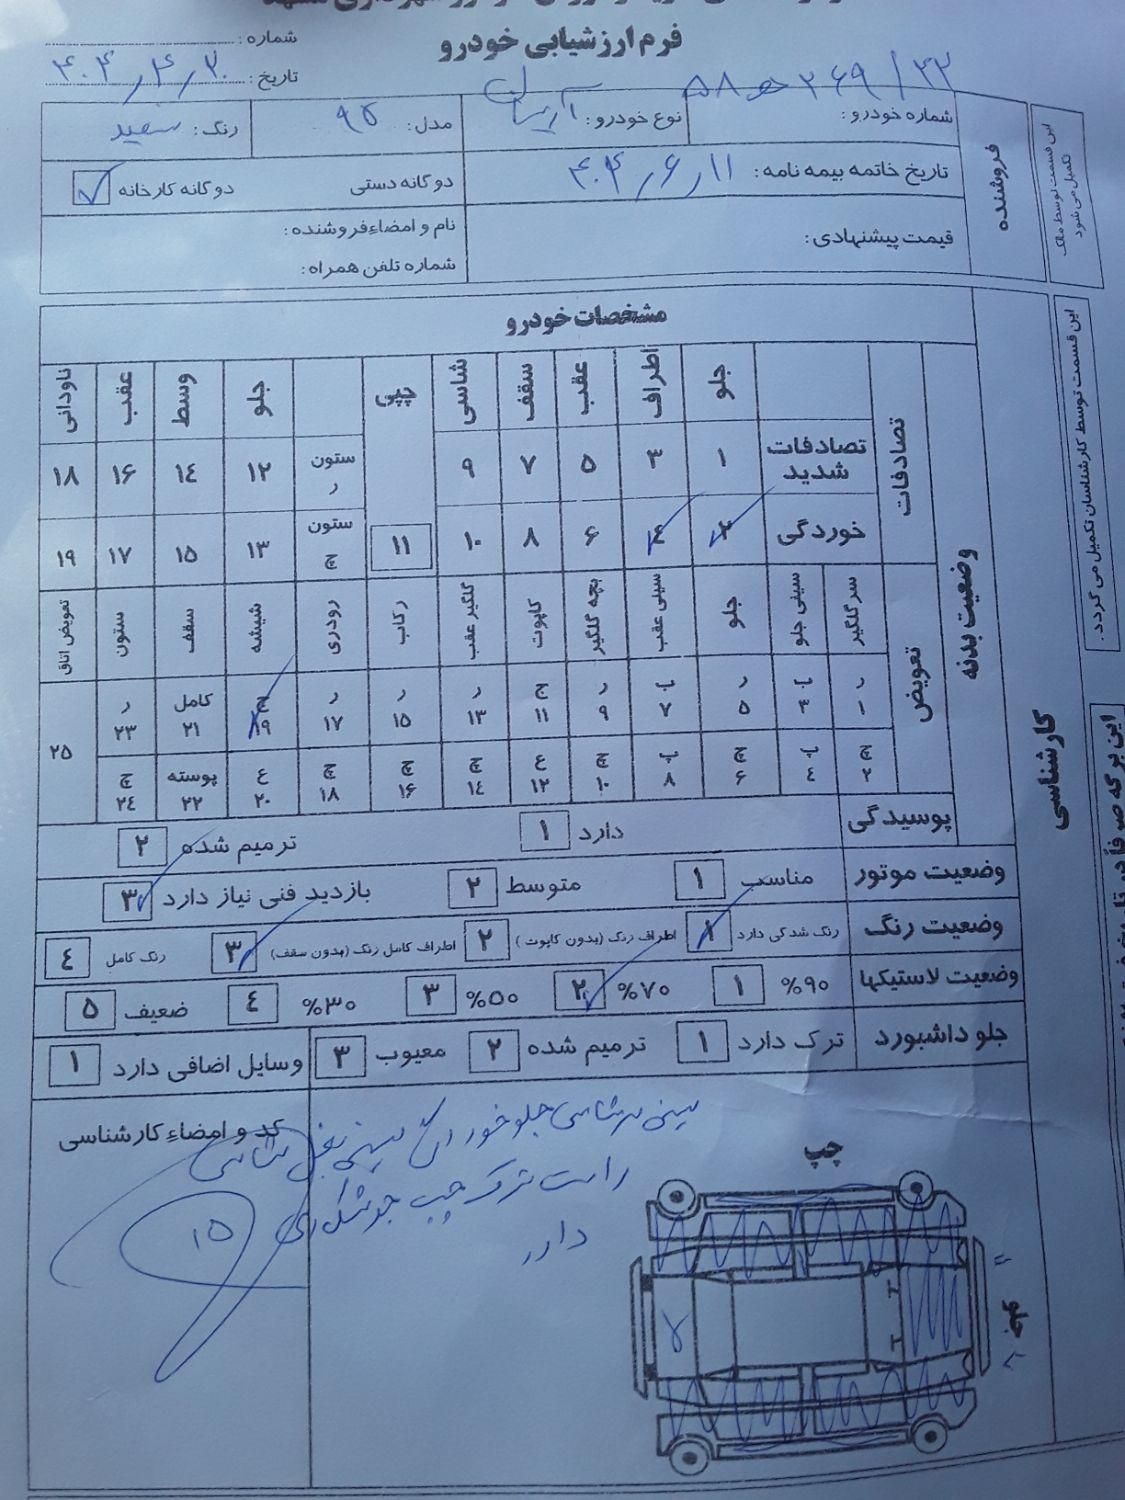 فرم ارزشیابی خودرو
شماره :
تاریخ : ۴۰۴٫۴٫۲۰
شماره خودرو : ۵۸ ه ۲۶۹ / ۲۲
نوع خودرو : آریسان
مدل : ۹۵
رنگ : سفید
تاریخ خاتمه بیمه نامه : ۴۰۴٫۶٫۱۱
دوگانه دستی
دوگانه کارخانه ✓
قیمت پیشنهادی :
نام و امضاء فروشنده :
شماره تلفن همراه :
فروشنده
این قسمت توسط مالک
تکمیل می شود
مشخصات خودرو
جلو اطراف عقب سقف شاسی چپی جلو وسط عقب ناودانی
تصادفات
تصادفات شدید ۱ ۳ ۵ ۷ ۹ ستون ر ۱۲ ۱۴ ۱۶ ۱۸
خوردگی ۲ ۴ ۶ ۸ ۱۰ ۱۱ ستون چ ۱۳ ۱۵ ۱۷ ۱۹
تعویض
سر گلگیر سینی جلو جلو سینی عقب بچه گلگیر کاپوت گلگیر عقب رکاب رودری شیشه سقف ستون تعویض اتاق
ر ۱ ب ۳ ر ۵ ب ۷ ر ۹ ج ۱۱ ر ۱۳ ر ۱۵ ر ۱۷ ج ۱۹ کامل ۲۱ ر ۲۳ ۲۵
چ ۲ پ ۴ چ ۶ پ ۸ چ ۱۰ ع ۱۲ چ ۱۴ چ ۱۶ چ ۱۸ ع ۲۰ پوسته ۲۲ چ ۲۴
وضعیت بدنه
کارشناسی
این قسمت توسط کارشناسان تکمیل می گردد .
پوسیدگی دارد ۱ ترمیم شده ۲
وضعیت موتور مناسب ۱ متوسط ۲ بازدید فنی نیاز دارد ۳
وضعیت رنگ رنگ شدگی دارد ۱ اطراف رنگ (بدون کاپوت) ۲ اطراف کامل رنگ (بدون سقف) ۳ رنگ کامل ۴
وضعیت لاستیکها %۹۰ ۱ %۷۰ ۲ %۵۰ ۳ %۳۰ ۴ ضعیف ۵
جلو داشبورد ترک دارد ۱ ترمیم شده ۲ معیوب ۳ وسایل اضافی دارد ۱
کد و امضاء کارشناسی
سینی سرشاسی جلو خوردگی سینی بغل شاسی
راست ترک چپ جوشکاری
دارد
۱۵
چپ
عقب
این برگه صرفاً در تاریخ